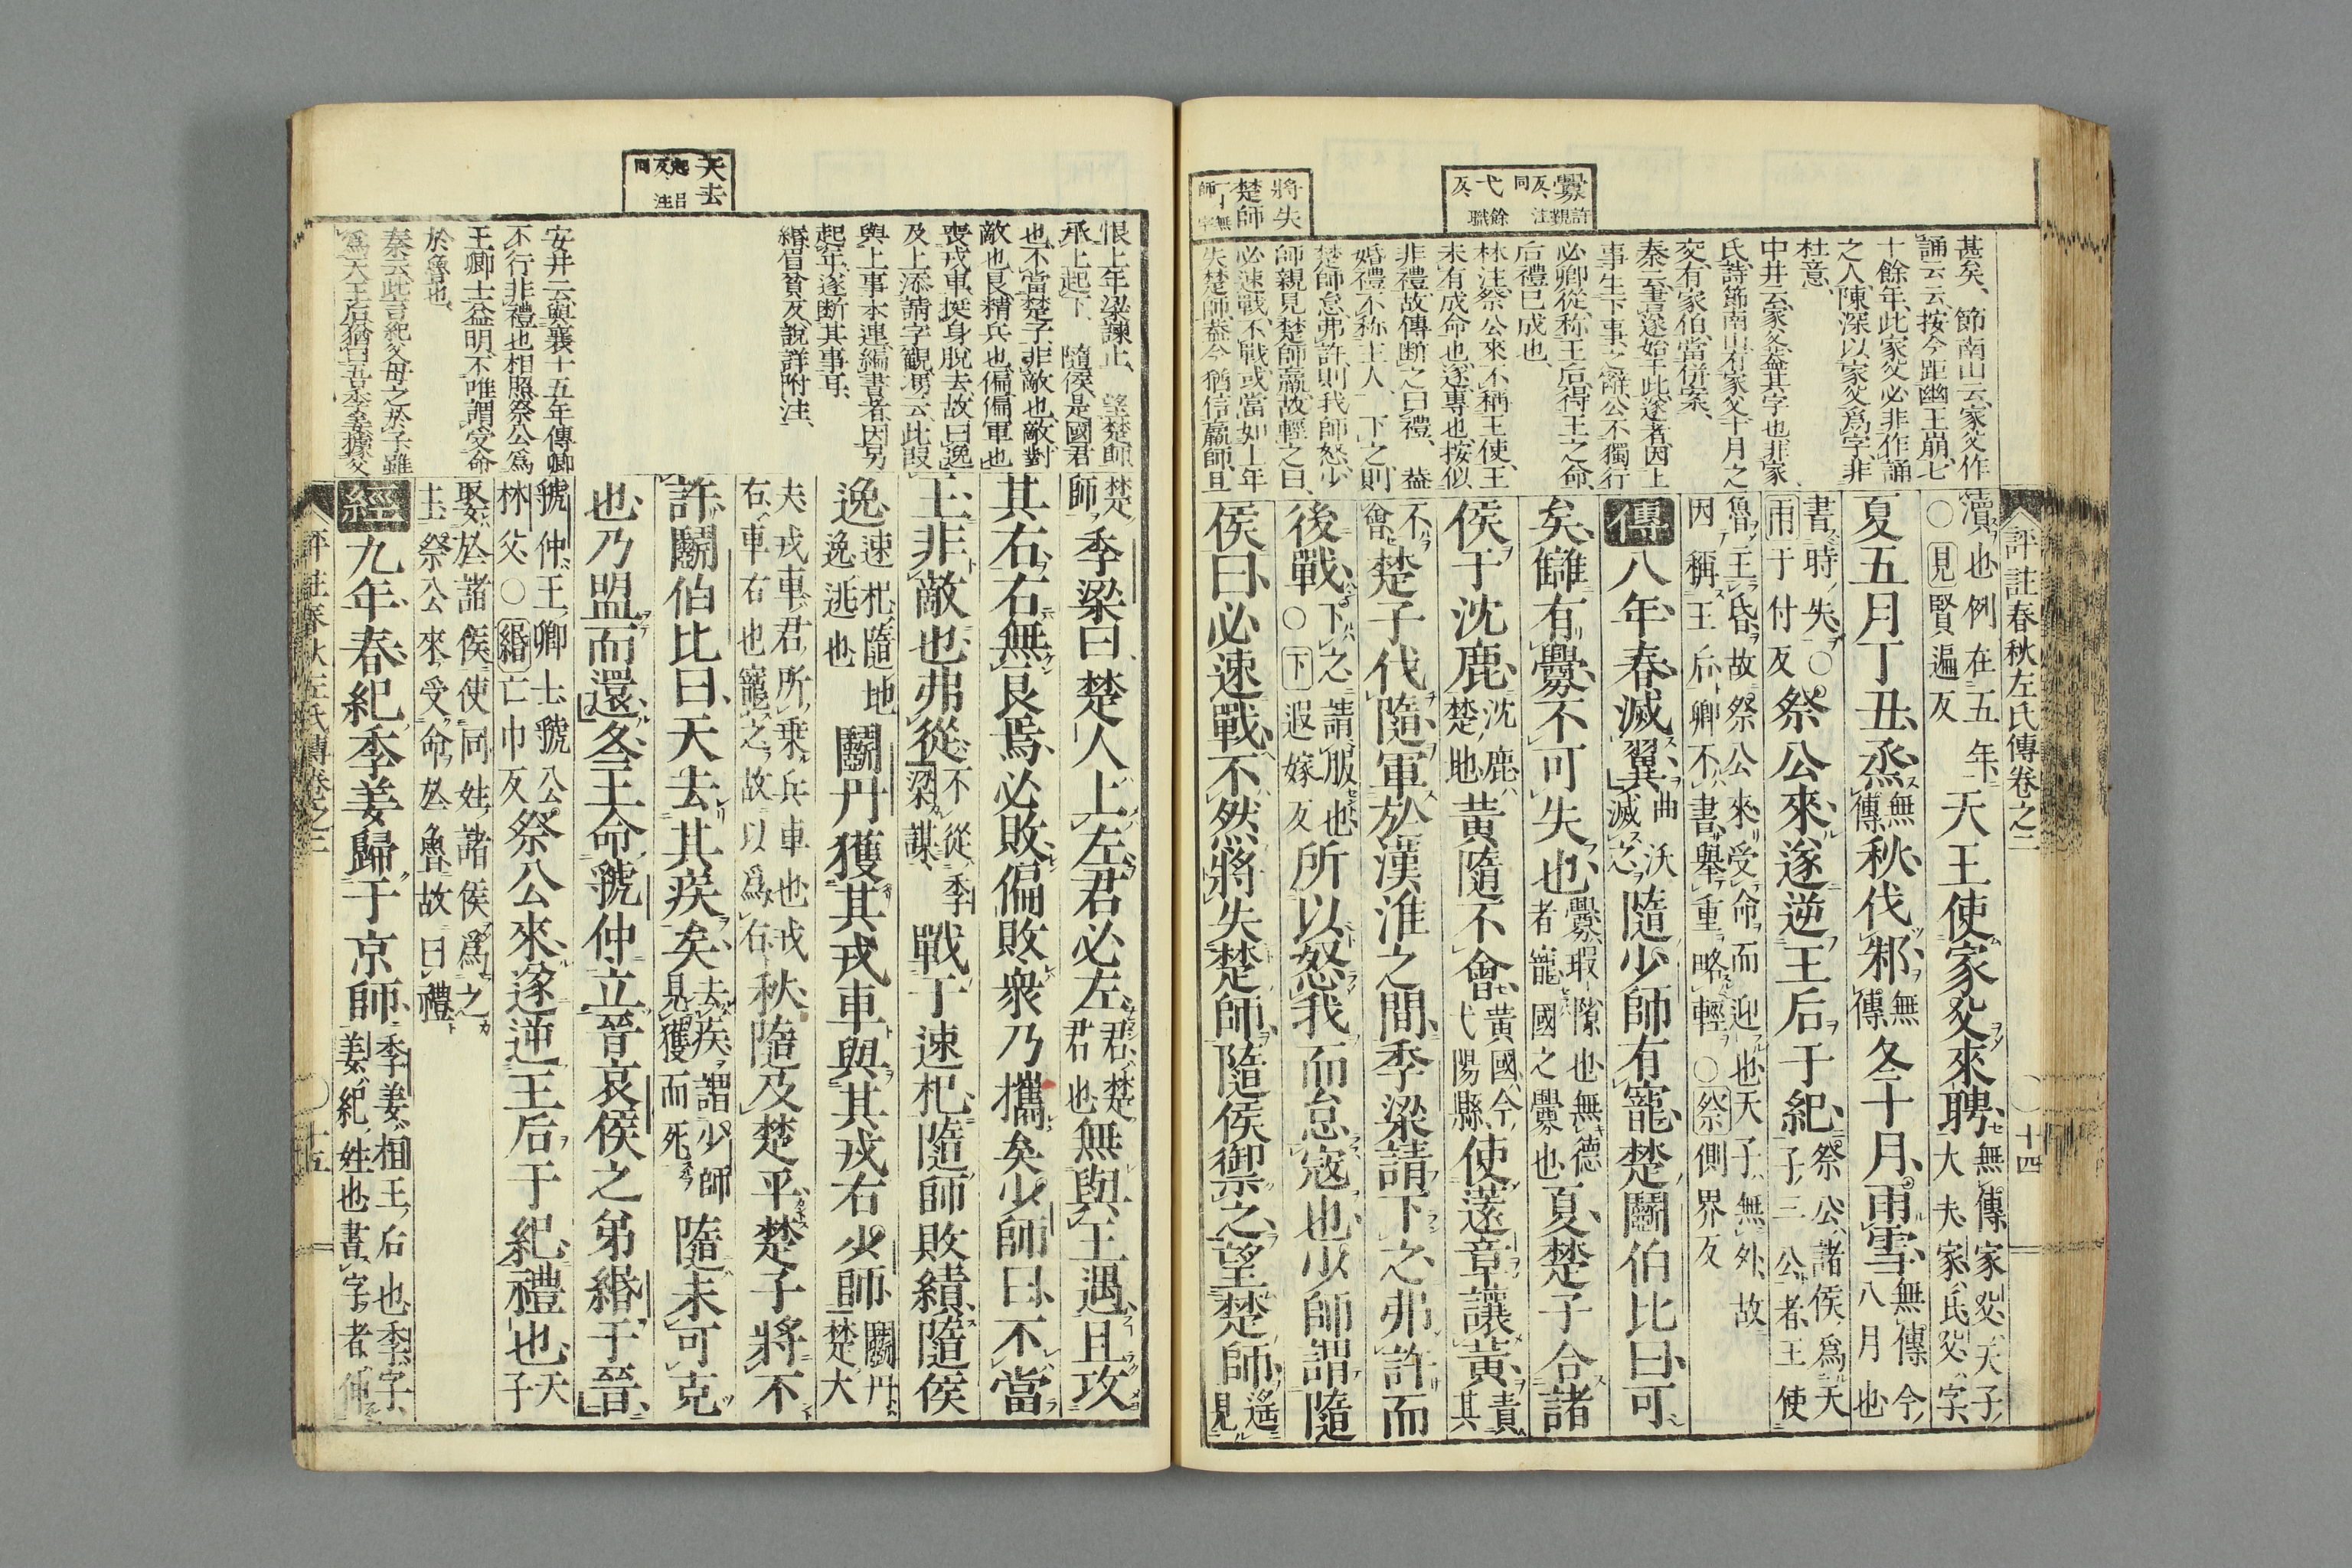 評註春秋左氏傳卷之二
十四
釁許覲反注同
弋餘職反
將失楚師一無師字
甚矣、節南山云、家父作
誦云云、按今距幽王崩、七
十餘年、此家父必非作誦
之人、陳深以家父爲字、非
杜意、
中井云、家父蓋其字也、非家
氏、詩節南山有家父、十月之
交、有家伯、當併案、
秦云、書遂始于此、遂者因上
事生下事之辭、公不獨行
必卿從、称王后、得王之命、
后禮已成也、
林注、祭公來、不稱王使、王
未有成命也、遂專也、按似
非禮、故傳断之曰禮、蓋
婚禮不称主人、下之、則
楚師怠、弗許、則我師怒、少
師親見楚師羸、故輕之曰、
必速戰、不戰、或當如上年
失楚師、蓋今猶信羸師、且
瀆也例在五年
○見賢遍反
天王使家父來聘
無傳家父天子
大夫家氏父字
夏五月丁丑烝
無傳
秋伐邾
無傳
冬十月雨雪
無傳今
八月也
書時失○
雨于付反
祭公來遂逆王后于紀
祭公諸侯爲天
子三公者王使
魯主昏故祭公來受命而迎也天子無外故
因稱王后卿不書舉重略輕○祭側界反
傳八年春滅翼
曲沃
滅之
隨少師有寵楚鬬伯比曰可
矣讎有釁不可失也
釁瑕隙也無德
者寵國之釁也
夏楚子合諸
侯于沈鹿
沈鹿
楚地
黄隨不會
黄國今
弋陽縣
使薳章讓黄
責其
不會
楚子伐隨軍於漢淮之間季梁請下之弗許而
後戰
下之請服也
○下遐嫁反
所以怒我而怠寇也少師謂隨
侯曰必速戰不然將失楚師隨侯禦之望楚師
遙見
楚師
季梁曰楚人上左君必左
君楚
君也
無與王遇且攻
其右右無良焉必敗偏敗衆乃攜矣少師曰不當
王非敵也弗從
不從季
梁謀
戰于速杞隨師敗績隨侯
逸
速杞隨地
逸逃也
鬬丹獲其戎車與其戎右少師
鬬丹
楚大
夫戎車君所乗兵車也戎
右車右也寵之故以爲右
秋隨及楚平楚子將不
許鬬伯比曰天去其疾矣
去疾謂少師
見獲而死
隨未可克
也乃盟而還冬王命虢仲立晉哀侯之弟緡于晉
虢仲王卿士虢公
林父○緡亡巾反
祭公來遂逆王后于紀禮也
天子
娶於諸侯使同姓諸侯爲之
主祭公來受命於魯故曰禮
經九年春紀季姜歸于京師
季姜桓王后也季字
姜紀姓也書字者伸
天去起呂反注同
恨上年梁諫止、望楚師、
承上起下、隨侯是國君
也、不當楚子、非敵也、敵對
敵也、良精兵也、偏偏軍也
喪戎車、挺身脫去、故曰逸
及上添請字觀、馮云、此段
與上事本連、編書者、因另
起年、遂断其事耳、
緡眉貧反、說詳附注、
安井云、與襄十五年傳、卿
不行、非禮也相照、祭公爲
王卿士益明、不唯謂受命
於魯也、
秦云、此言紀父母之於子、雖
爲天王后、猶曰吾季姜、據父
評註春秋左氏傳卷之二
十五